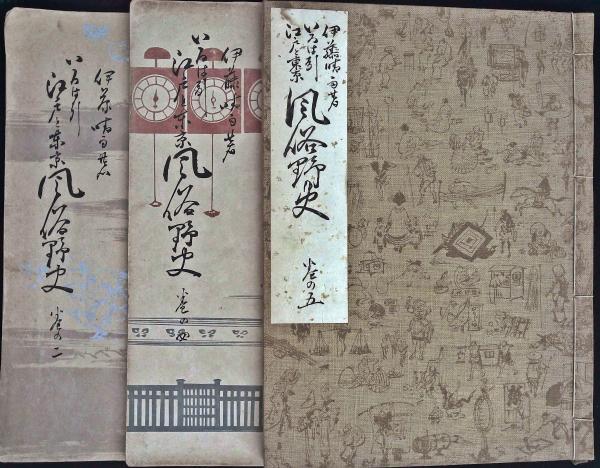 伊藤晴雨著
いろは引
江戸と東京
風俗野史
巻の五
伊藤晴雨著
いろは引
江戸と東京風俗野史
巻の四
伊藤晴雨著
いろは引
江戸と東京風俗野史
巻の二